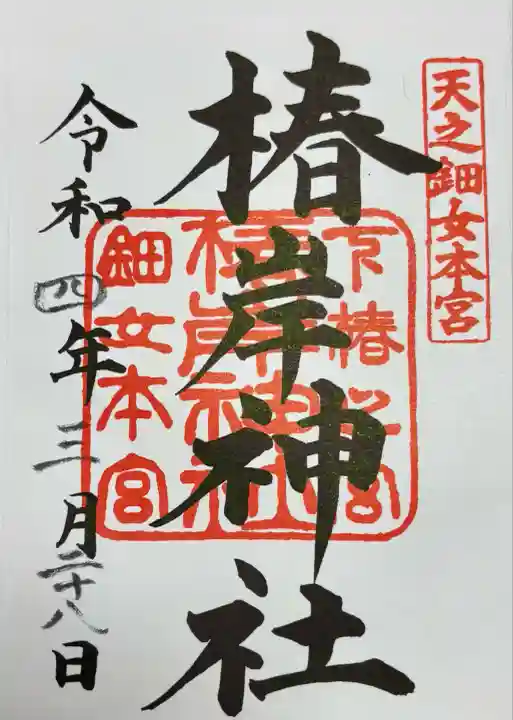 天之鈿女本宮
椿岸神社
椿岸神社
鈿女本宮
令和四年三月二十八日